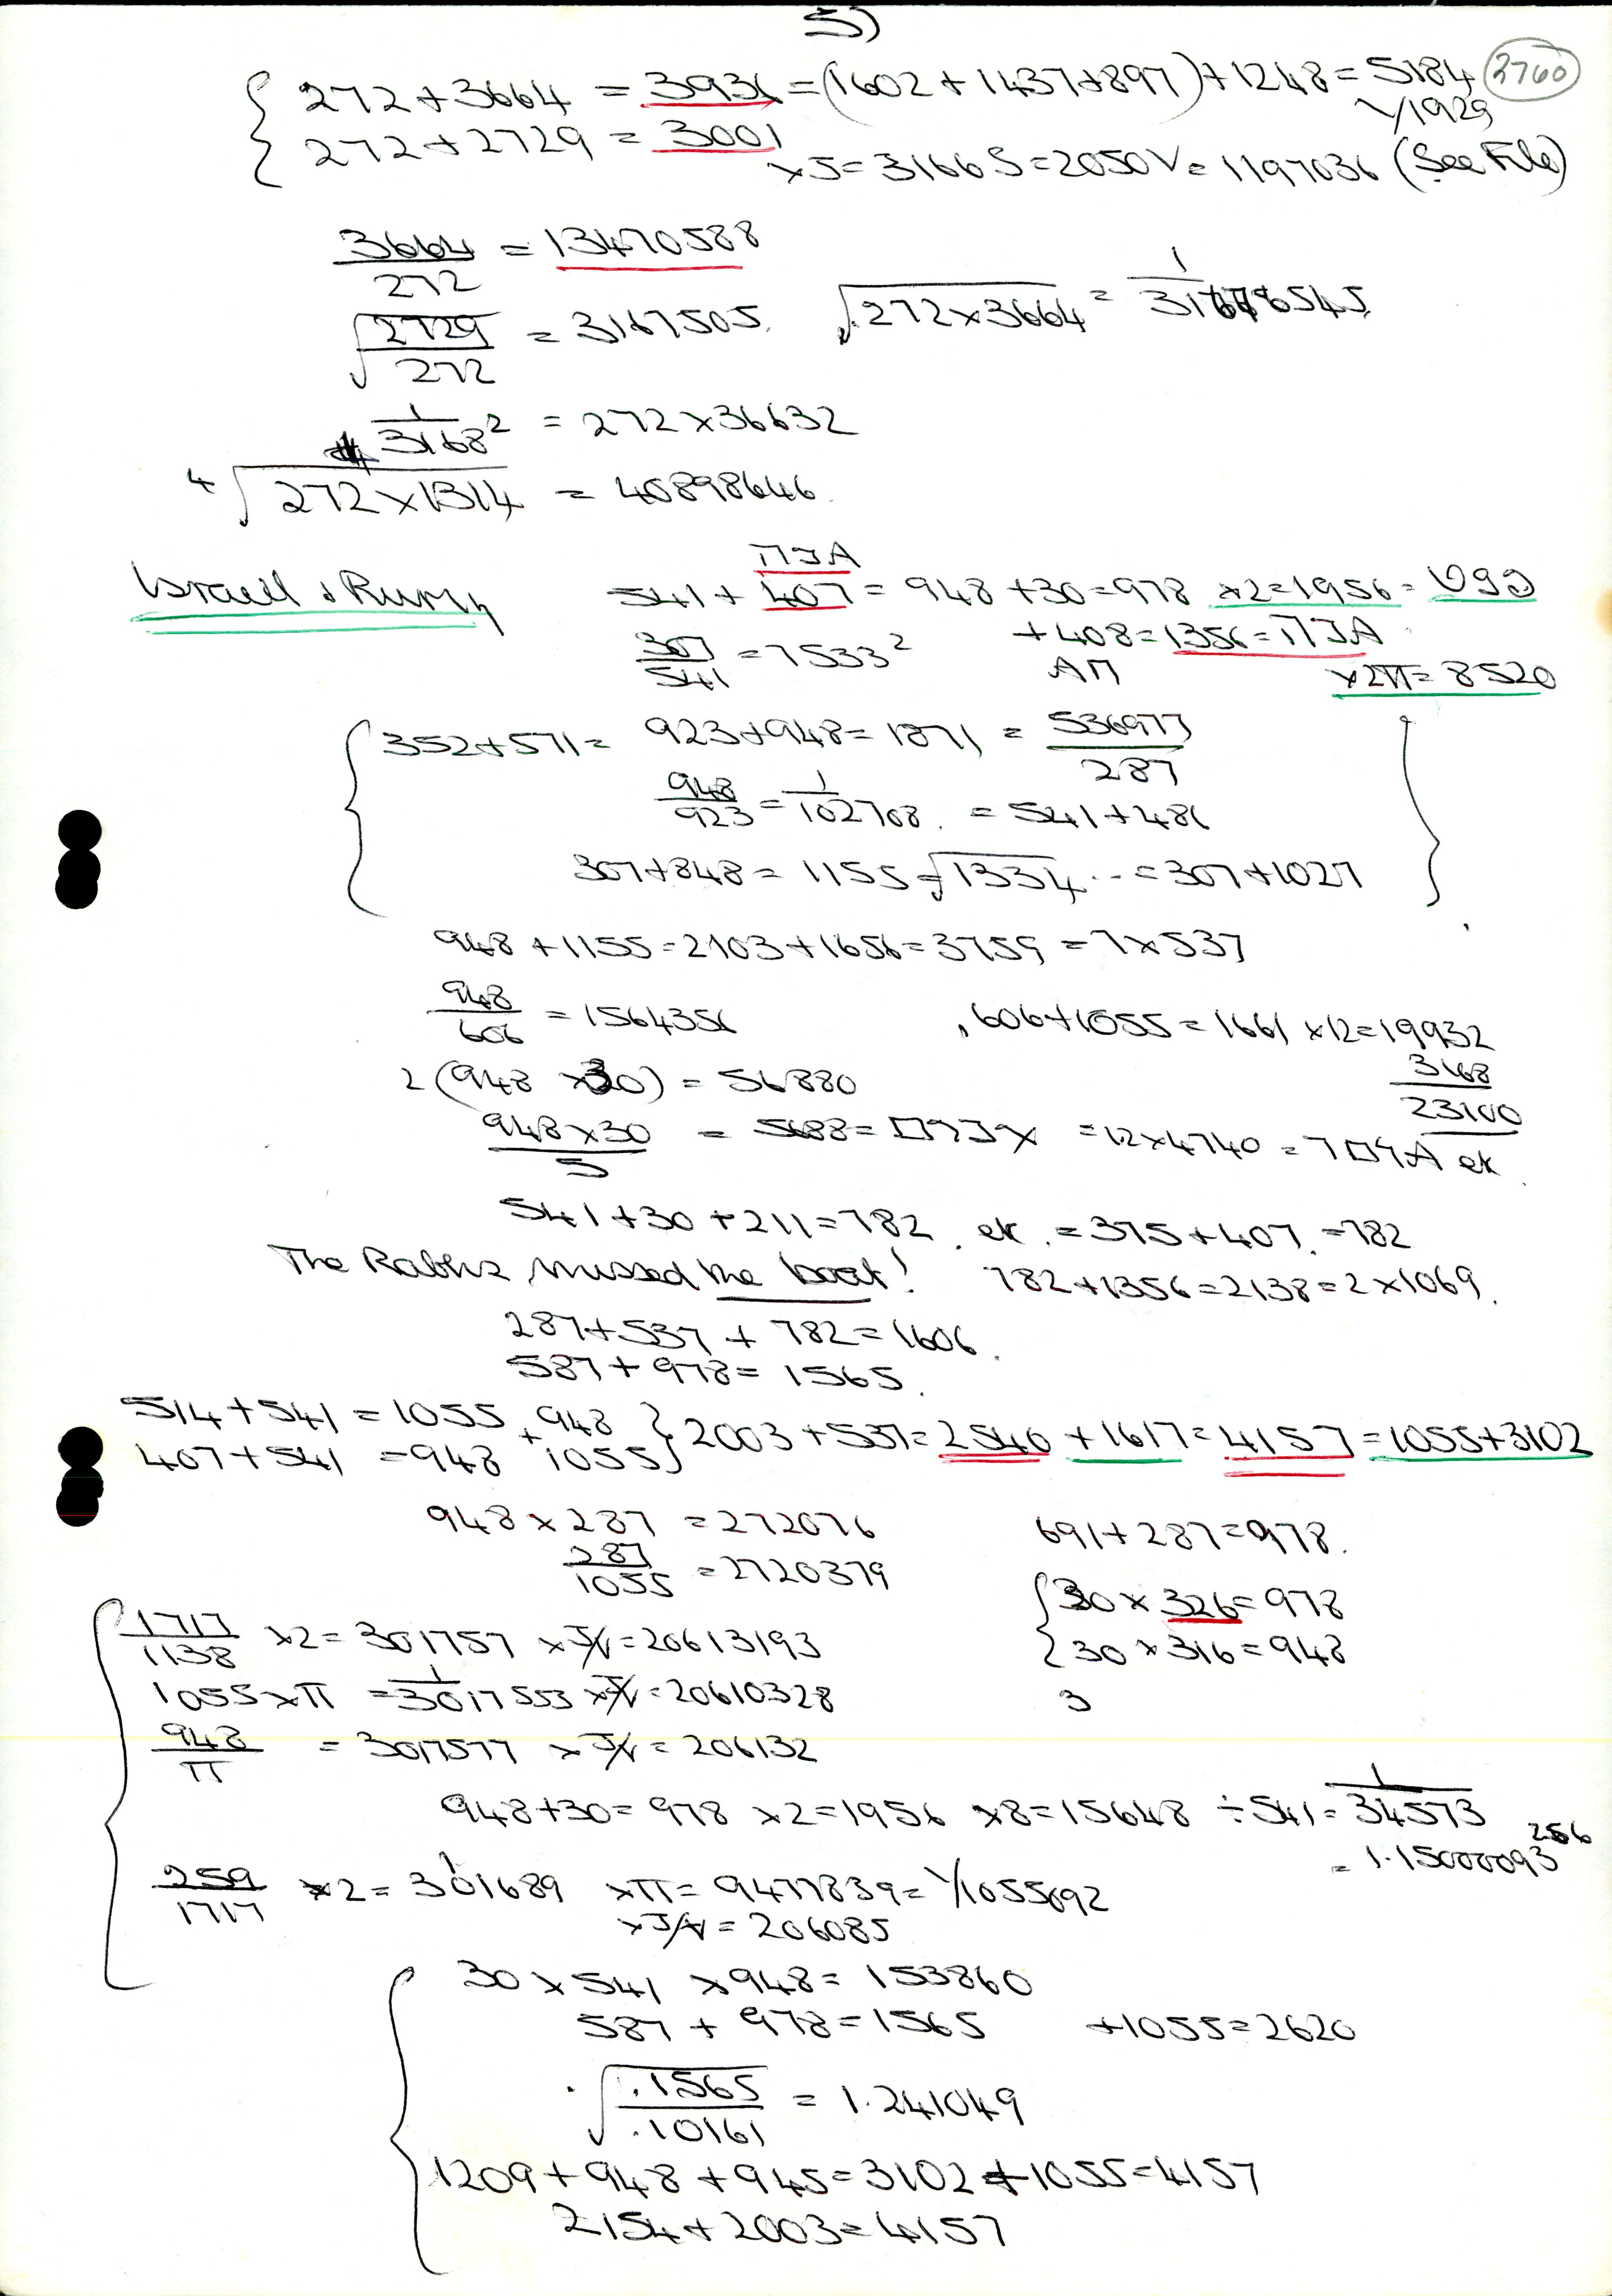 5)
272+3664 = 3936 = (1602+1437+897)+1248 = 5184 (2760)
√1929
272+2729 = 3001
×5 = 3166 S = 2050 V = 1197036 (See File)
3664/272 = 13470588
√(2729/272) = 3167505. √(272×3664) = 1/
1/3168² = 272×36632
⁴√(272×1314) = 40898646.
Israel & Rumy
541 + 407 = 948 +30 = 978 ×2 = 1956 =
307/541 = 7533² +408 = 1356 =
×2π = 8520
352+571 = 923+948 = 1871 = 536977/287
948/923 = 1/102708. = 541+486
307+848 = 1155 = √1334... = 307+1027
948+1155 = 2103+1656 = 3759 = 7×537
948/606 = 1564356 606+1055 = 1661 ×12 = 19932
3168
23100
2(948 ×30) = 56880
948×30/5 = 5688 = = 12×4740 = ek
541+30+211 = 782. ek. = 375+407. = 782
The Rabbis missed the boat! 782+1356 = 2138 = 2×1069.
287+537 + 782 = 1606.
587+978 = 1565.
514+541 = 1055 + 948 } 2003+537 = 2540 +1617 = 4157 = 1055+3102
407+541 = 948 1055
948 × 287 = 272076 691+287 = 978.
287/1055 = 2720379
30 × 326 = 978
1717/1138 ×2 = 301757 = 20613193
30 × 316 = 948
1055×π = 1/3017553 = 20610328
3
948/π = 3017577 = 206132
948+30 = 978 ×2 = 1956 ×8 = 15648 ÷541 = 1/34573
= 1.15000093²⁵⁶
259/1717 ×2 = 301689 ×π = 9477839 = 1/1055092
= 206085
30 × 541 × 948 = 153860
587 + 978 = 1565 +1055 = 2620
√(.1565/.10161) = 1.241049
1209+948+945 = 3102+1055 = 4157
2154+2003 = 4157